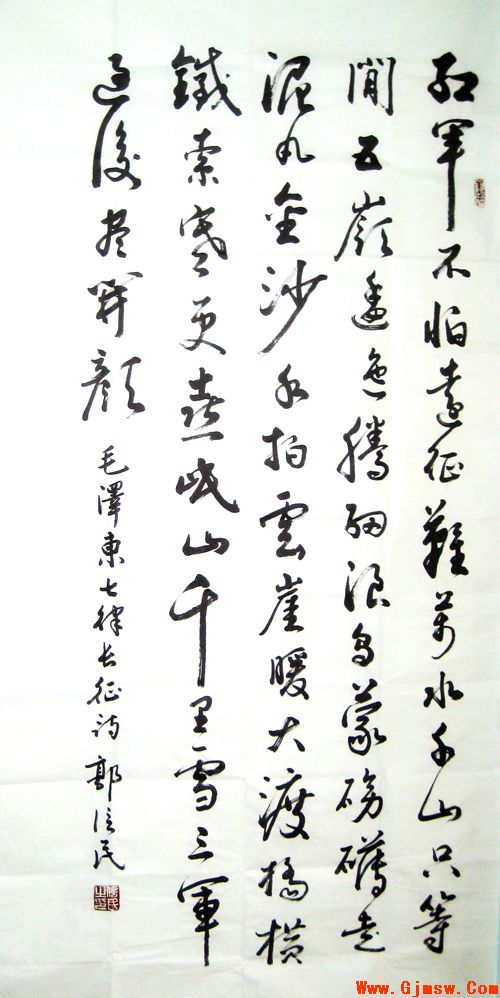 紅軍不怕遠征難萬水千山只等
閒五嶺逶迤騰細浪烏蒙磅礴走
泥丸金沙水拍雲崖暖大渡橋橫
鐵索寒更喜岷山千里雪三軍
過後盡開顏
毛澤東七律长征詩 郭信民
信民之印
Www.Gjmsw.Com